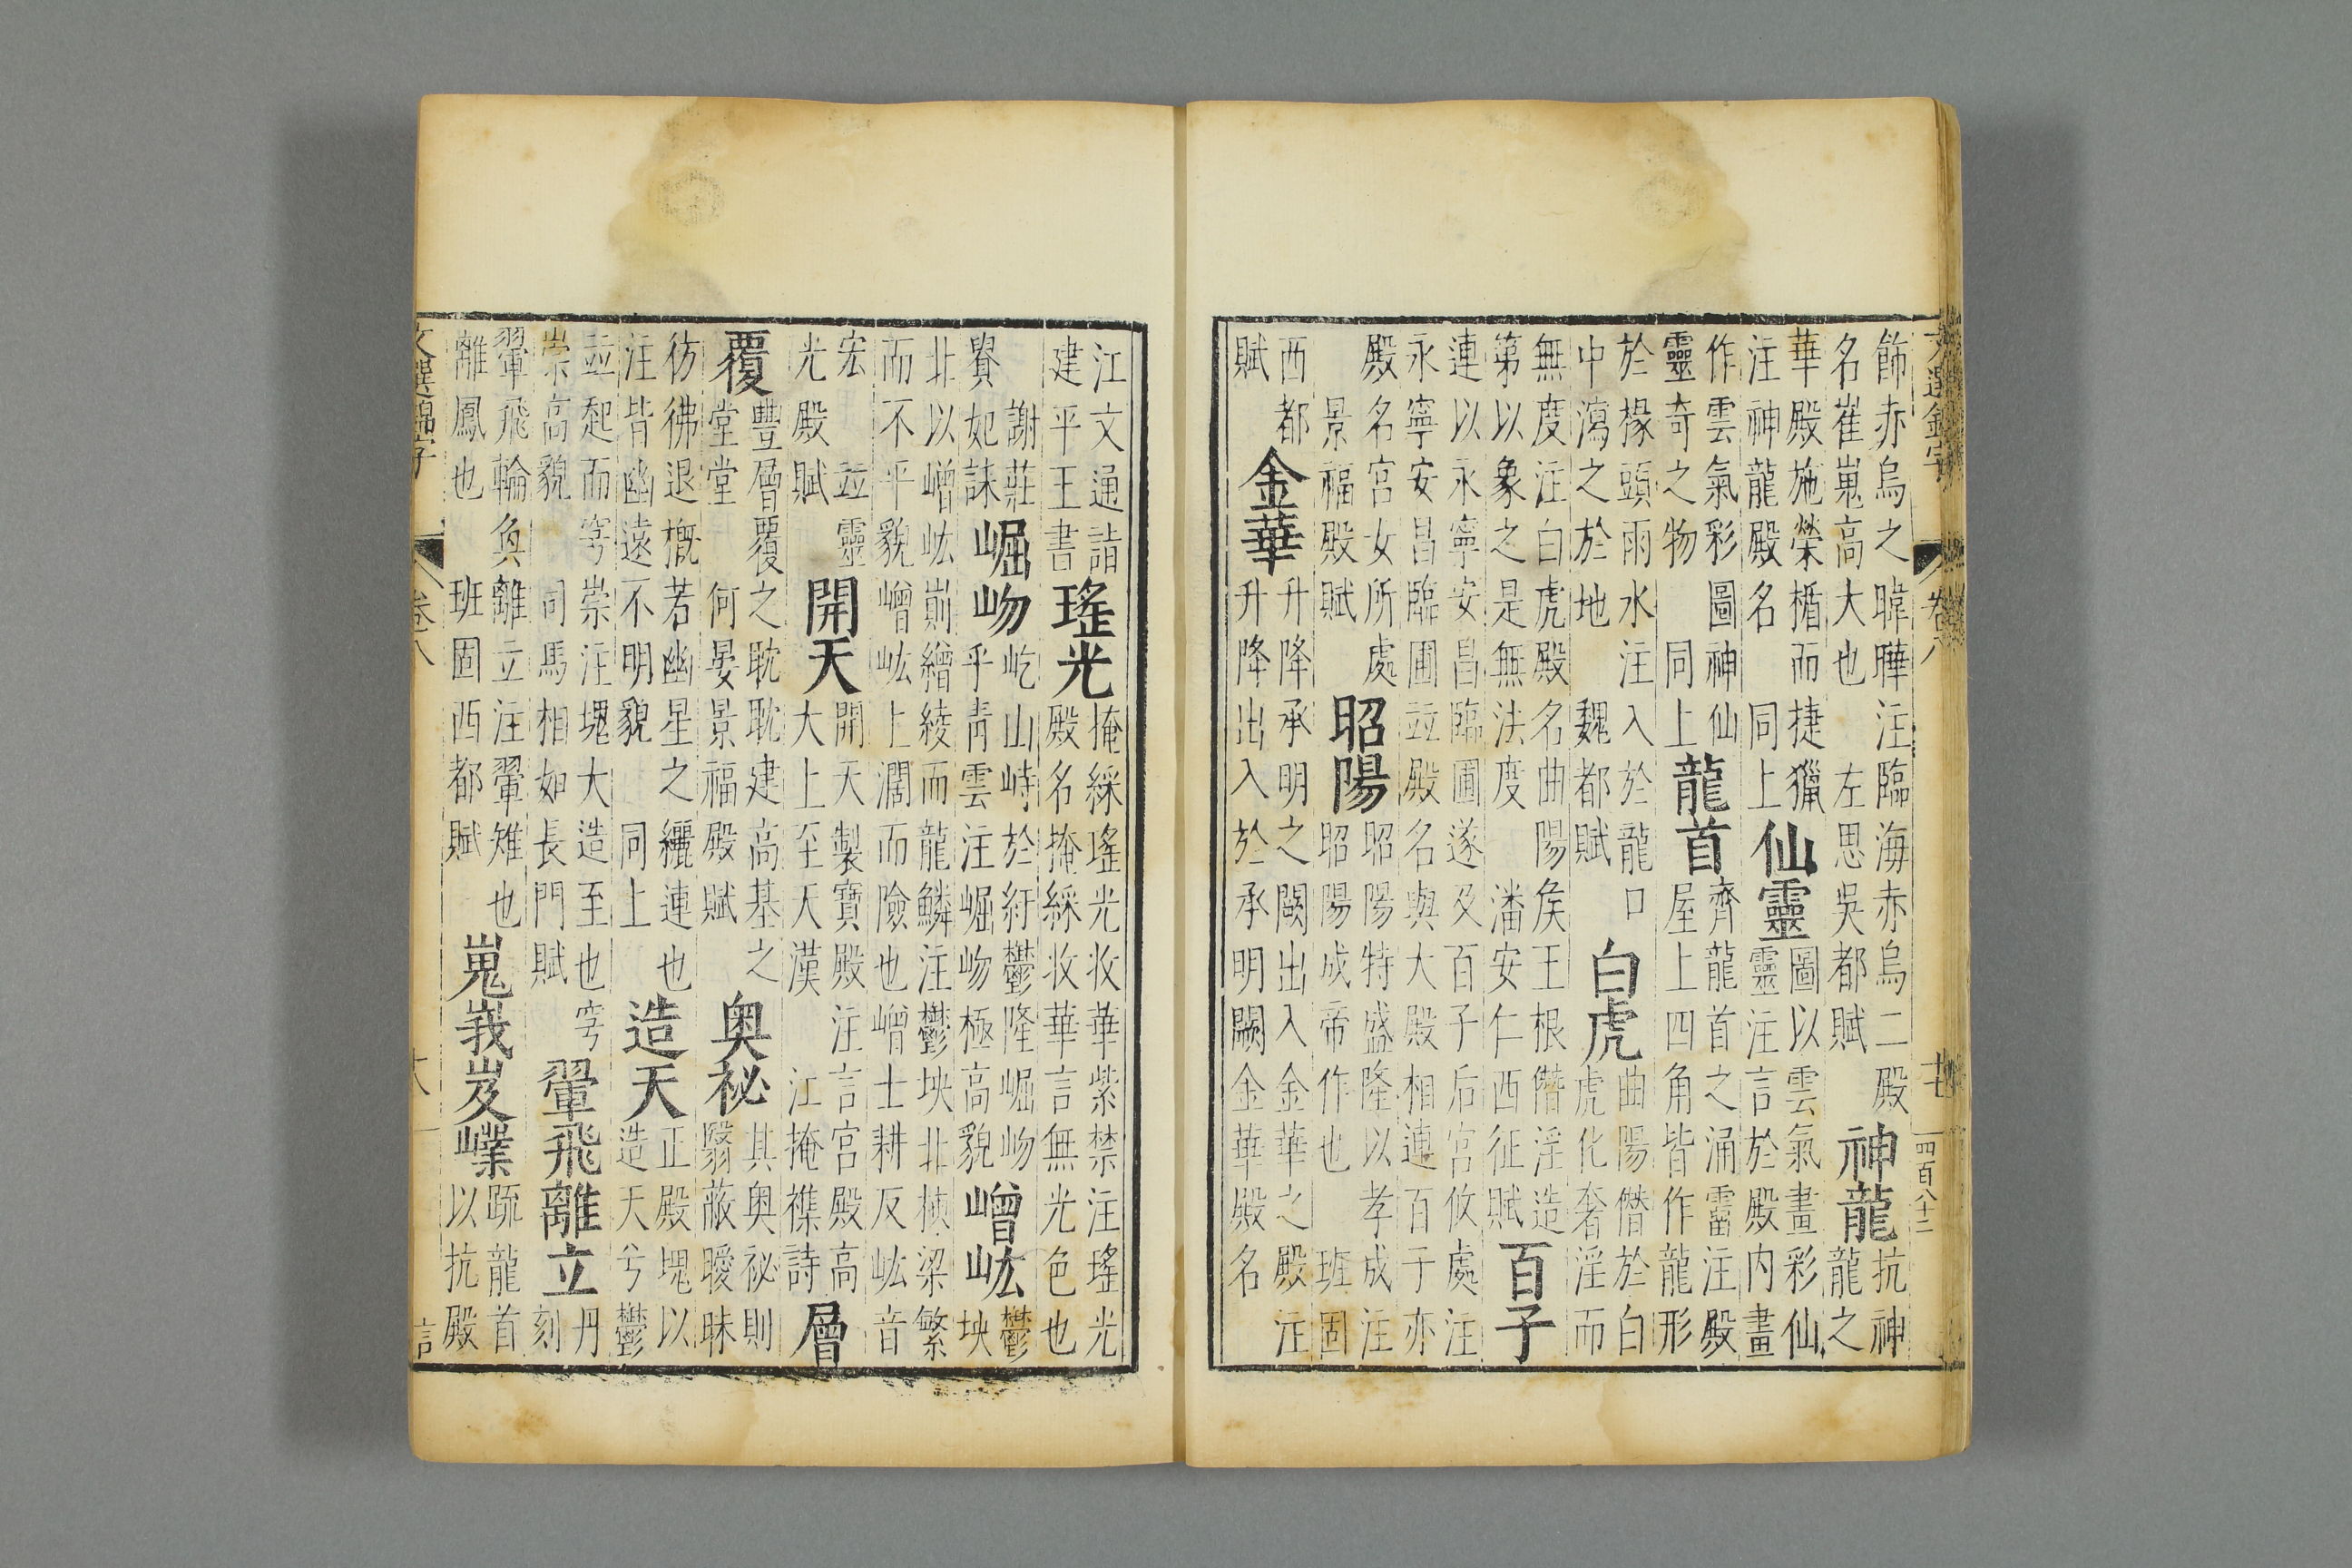 文選錦字 卷八 十七 四百八十二
飾赤烏之暐曄注臨海赤烏二殿
名崔嵬高大也 左思吳都賦
神龍
抗神
龍之
華殿施榮楯而捷獵
注神龍殿名 同上
仙靈
圖以雲氣畫彩仙
靈注言於殿内畫
作雲氣彩圖神仙
靈奇之物 同上
龍首
齊龍首之涌霤注殿
屋上四角皆作龍形
於椽頭雨水注入於龍口
中瀉之於地 魏都賦
白虎
曲陽僭於白
虎化奢淫而
無度注白虎殿名曲陽矦王根僭淫造
第以象之是無法度 潘安仁西征賦
百子
連以永寧安昌臨圃遂及百子后宮攸處注
永寧安昌臨圃竝殿名與大殿相連百于亦
殿名宮女所處
景福殿賦
昭陽
昭陽特盛隆以孝成注
昭陽成帝作也 班固
西都
賦
金華
升降承明之闕出入金華之殿注
升降出入於承明闕金華殿名
江文通詣
建平王書
瑤光
掩綵瑤光收華紫禁注瑤光
殿名掩綵收華言無光色也
謝莊
貴妃誄
崛岉
屹山峙於紆鬱隆崛岉
乎青雲注崛岉極高貌
嶒峵
鬱
坱
北以嶒峵崱繒綾而龍鱗注鬱坱北楨梁繁
而不平貌嶒峵上濶而險也嶒士耕反峵音
宏 竝靈
光殿賦
開天
開天製寶殿注言宮殿高
大上至天漢 江掩襍詩
層
覆
豐層覆之耽耽建高基之
堂堂 何晏景福殿賦
奥祕
其奥祕則
翳蔽曖昧
彷彿退概若幽星之纚連也
注皆幽遠不明貌 同上
造天
正殿塊以
造天兮鬱
竝起而穹崇注塊大造至也穹
崇高貌 司馬相如長門賦
翬飛離立
丹
刻
翬飛輪奐離立注翬雉也
離鳳也 班固西都賦
嵬峩岌嶪
䟽龍首
以抗殿
文選錦字 卷八 十八